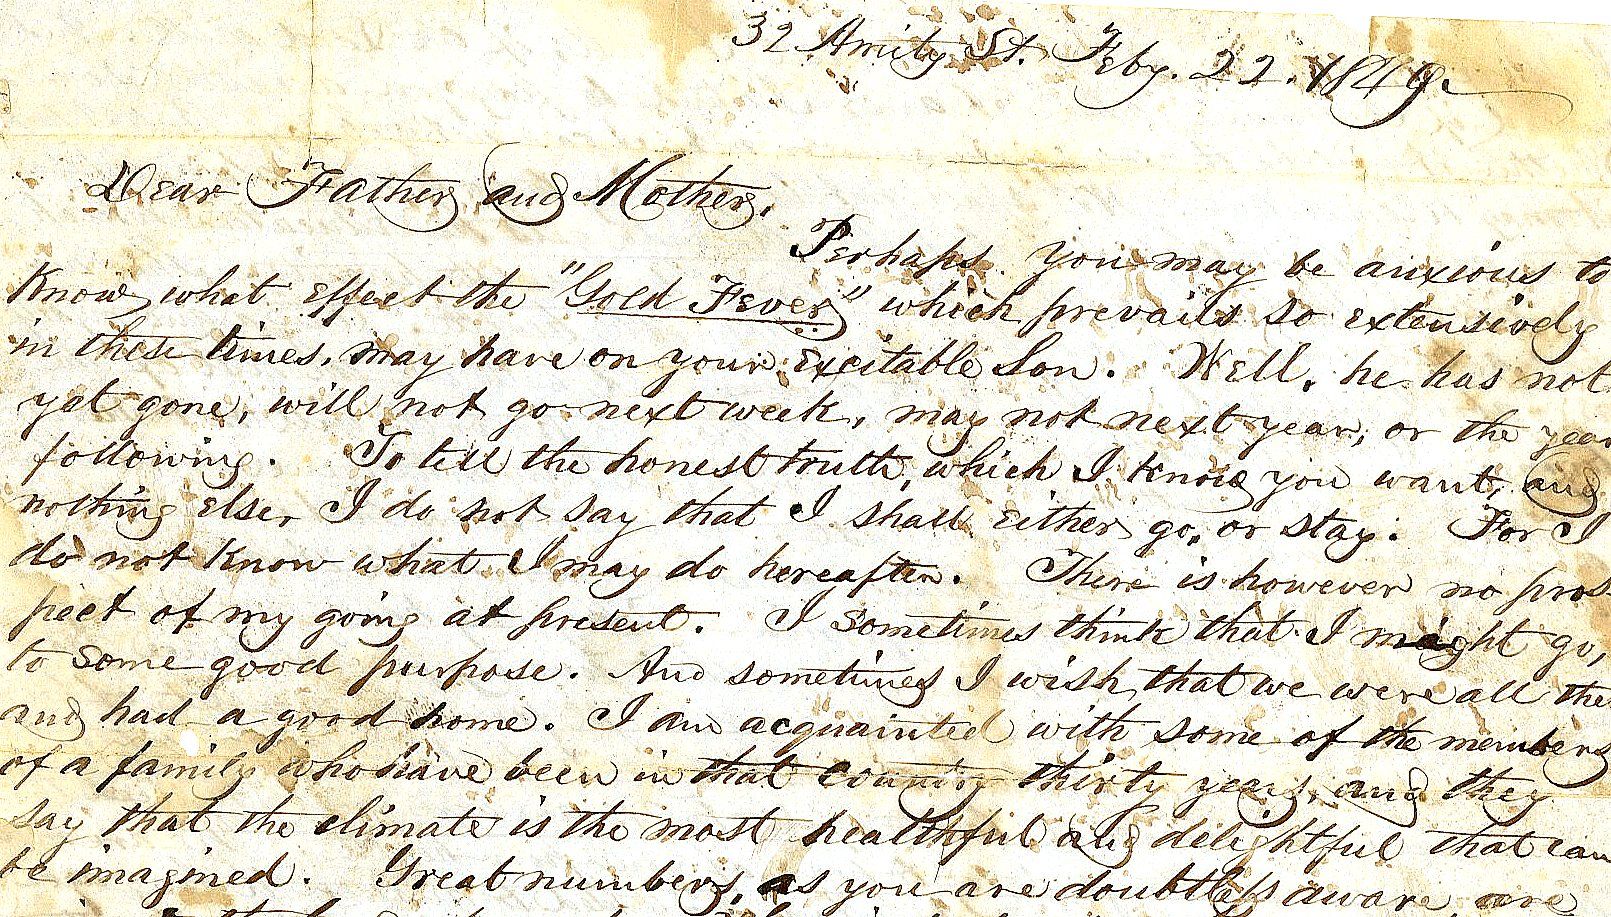 32 Amity St. Feby. 22. 1849.
Dear Father and Mother.
Perhaps you may be anxious to
know what effect the "Gold Fever" which prevails so extensively
in these times, may have on your excitable Son. Well, he has not
yet gone, will not go next week, may not next year, or the year
following. To tell the honest truth, which I know you want, and
nothing else, I do not say that I shall either go, or stay. For I
do not know what I may do hereafter. There is however no pros-
pect of my going at present. I sometimes think that I might go,
to some good purpose. And sometimes I wish that we were all the
and had a good home. I am acquainted with some of the members
of a family who have been in that country thirty years, and they
say that the climate is the most healthful and delightful that can
be imagined. Great numbers, as you are doubtless aware are